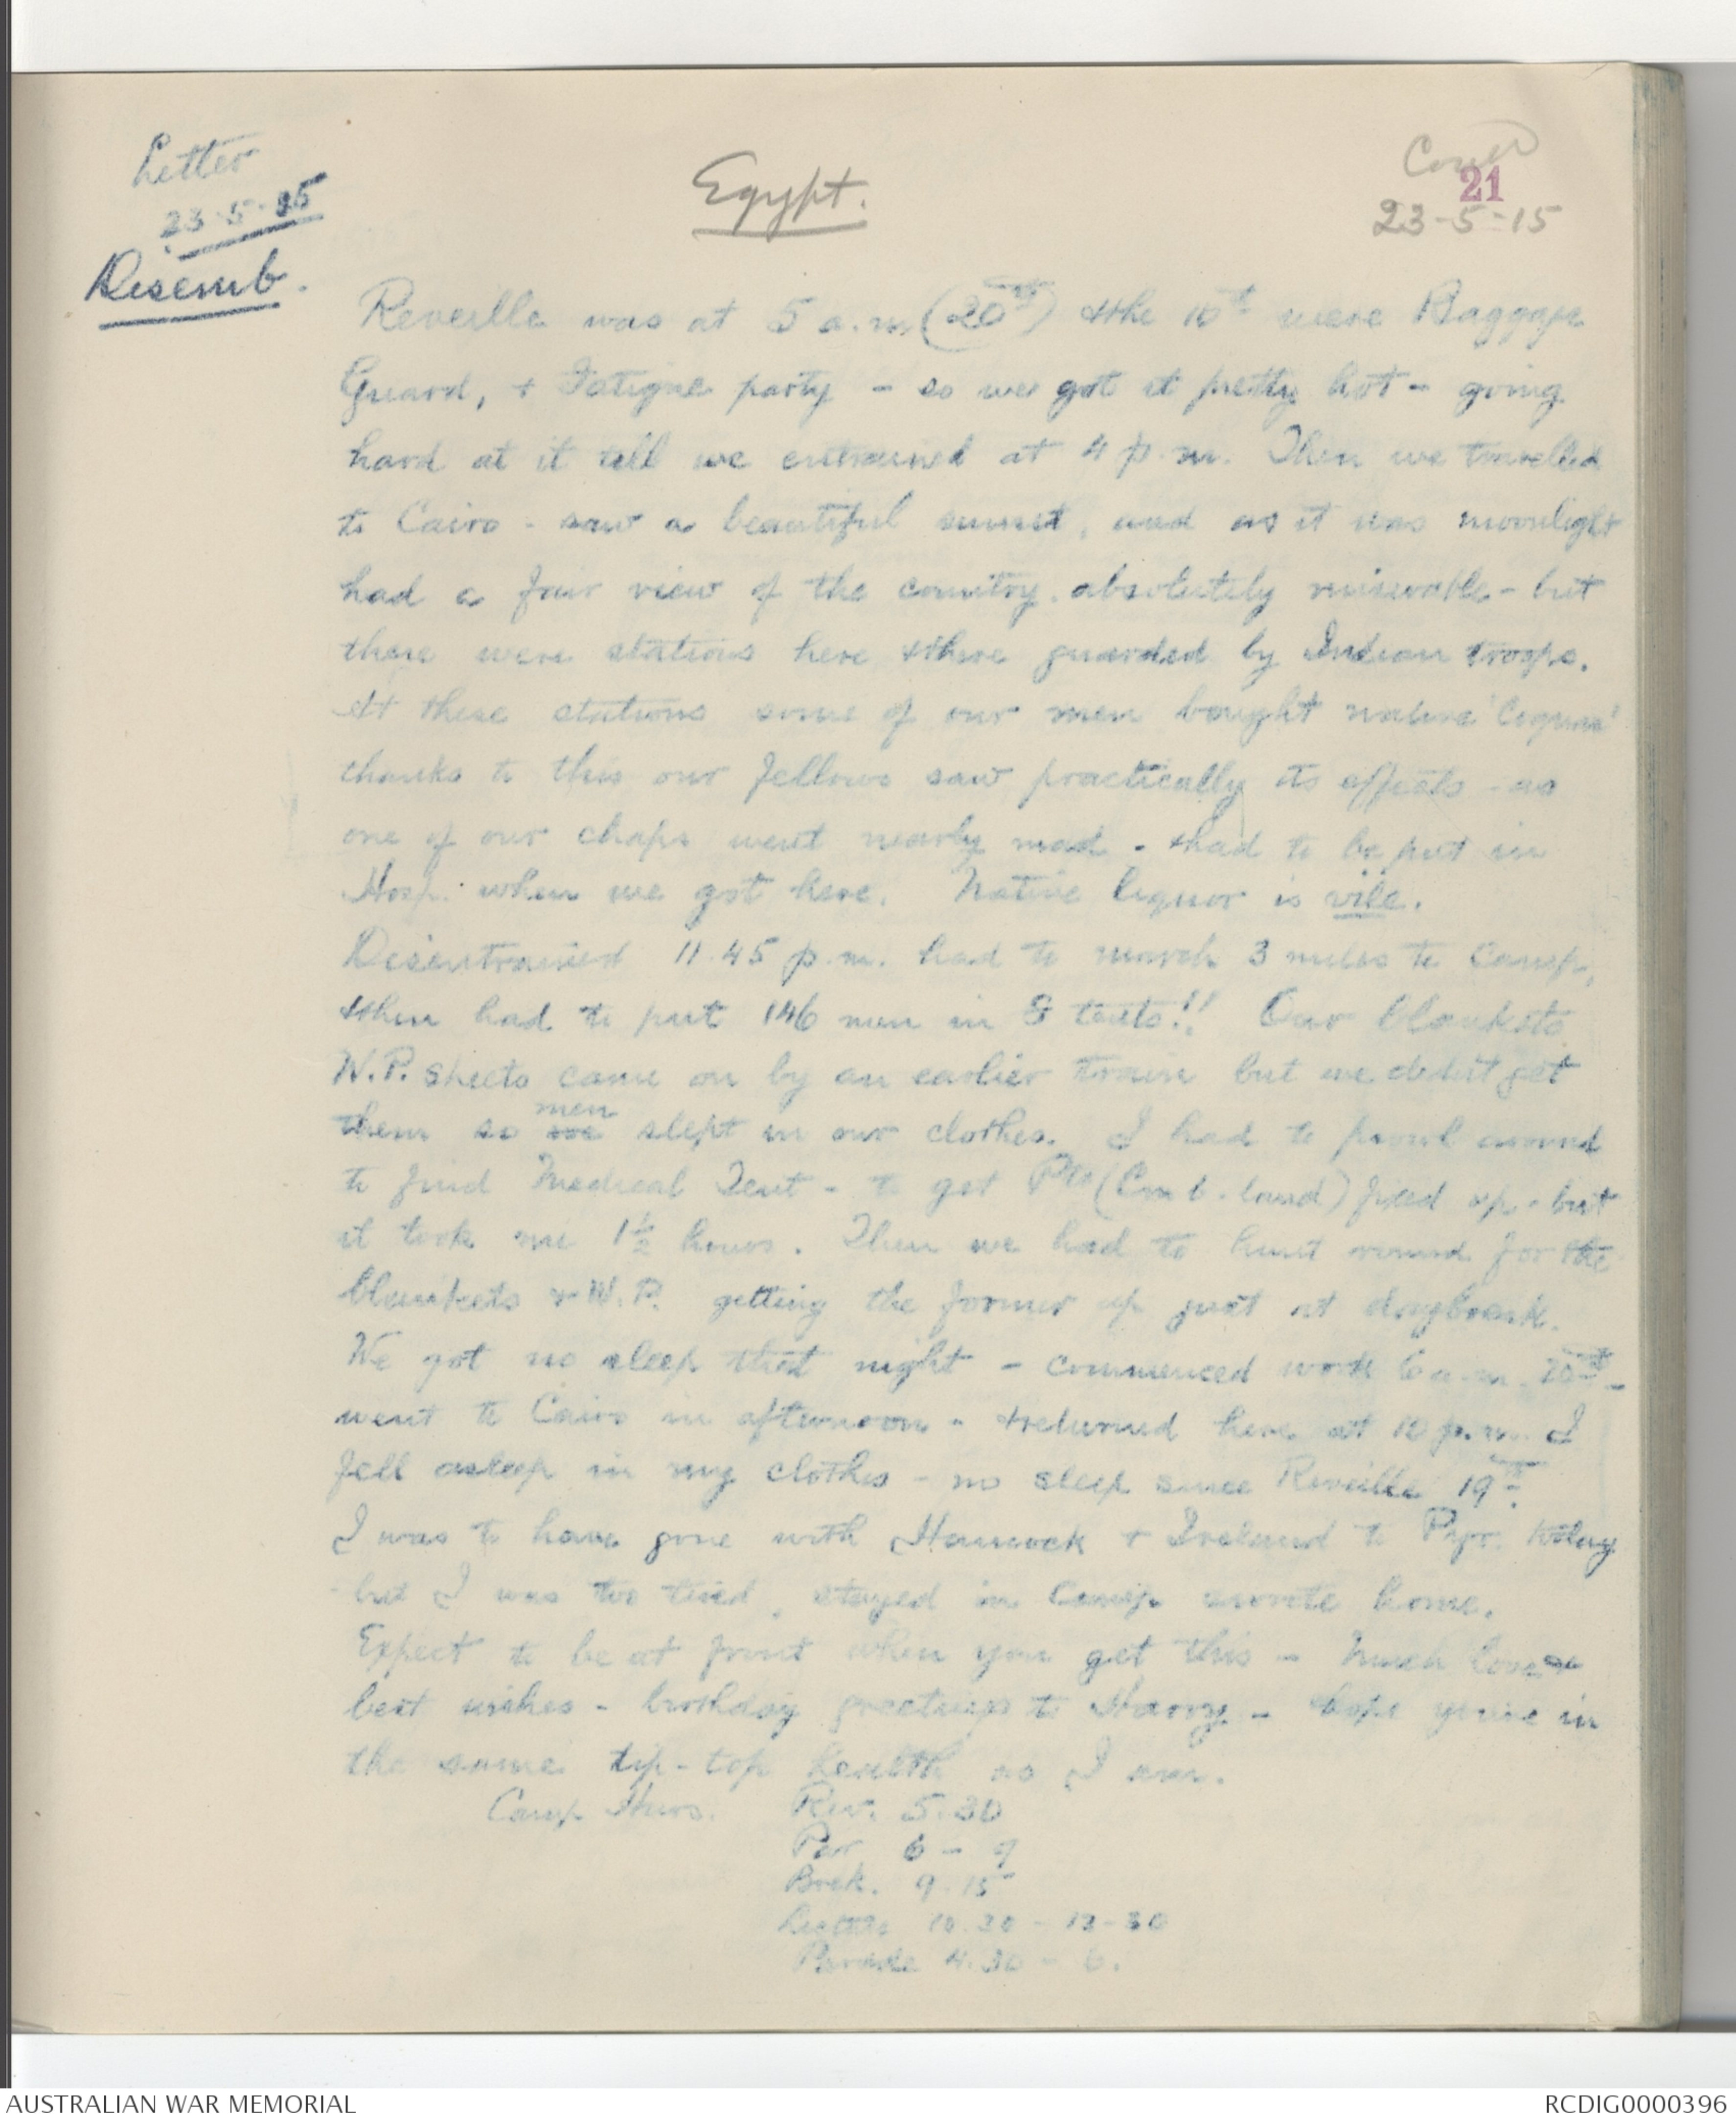 Letter
23-5-15
Disemb.
Egypt.
Cont'd
21
23-5-15
Reveille was at 5 a.m (20th) & the 10th were Baggage
Guard, & Fatigue party - so we got it pretty hot - going
hard at it till we entrained at 4 p.m. Then we travelled
to Cairo - saw a beautiful sunset, and as it was moonlight
had a fair view of the country. absolutely miserable - but
there were stations here & there guarded by Indian troops.
At these stations some of our men bought native 'liquor'
thanks to this our fellows saw practically its effects - as
one of our chaps went nearly mad - & had to be put in
Hosp. when we got here. Native liquor is vile.
Disentrained 11.45 p.m. had to march 3 miles to Camp,
& then had to put 146 men in 8 tents!! Our blankets
W.P. sheets came on by an earlier train but we didn't get
them so we men slept in our clothes. I had to prowl around
to find Medical Tent - to get Pte fixed up - but
it took me 1½ hours. Then we had to hunt round for the
blankets & W.P. getting the former up just at daybreak.
We got no sleep that night - commenced work 6 a.m. 20th -
went to Cairo in afternoon - & returned here at 10 p.m. I
fell asleep in my clothes - no sleep since Reveille 19th.
I was to have gone with Hancock & Ireland to today
- but I was too tired, stayed in Camp & wrote home.
Expect to be at front when you get this - Much love &
best wishes - birthday greetings to Harry - hope you're in
the same tip-top health as I am.
Camp Hurs. Rev. 5.30
Par 6 - 9
Brek. 9.15
10.30 - 12-30
Parade 4.30 - 6.
AUSTRALIAN WAR MEMORIAL
RCDIG0000396